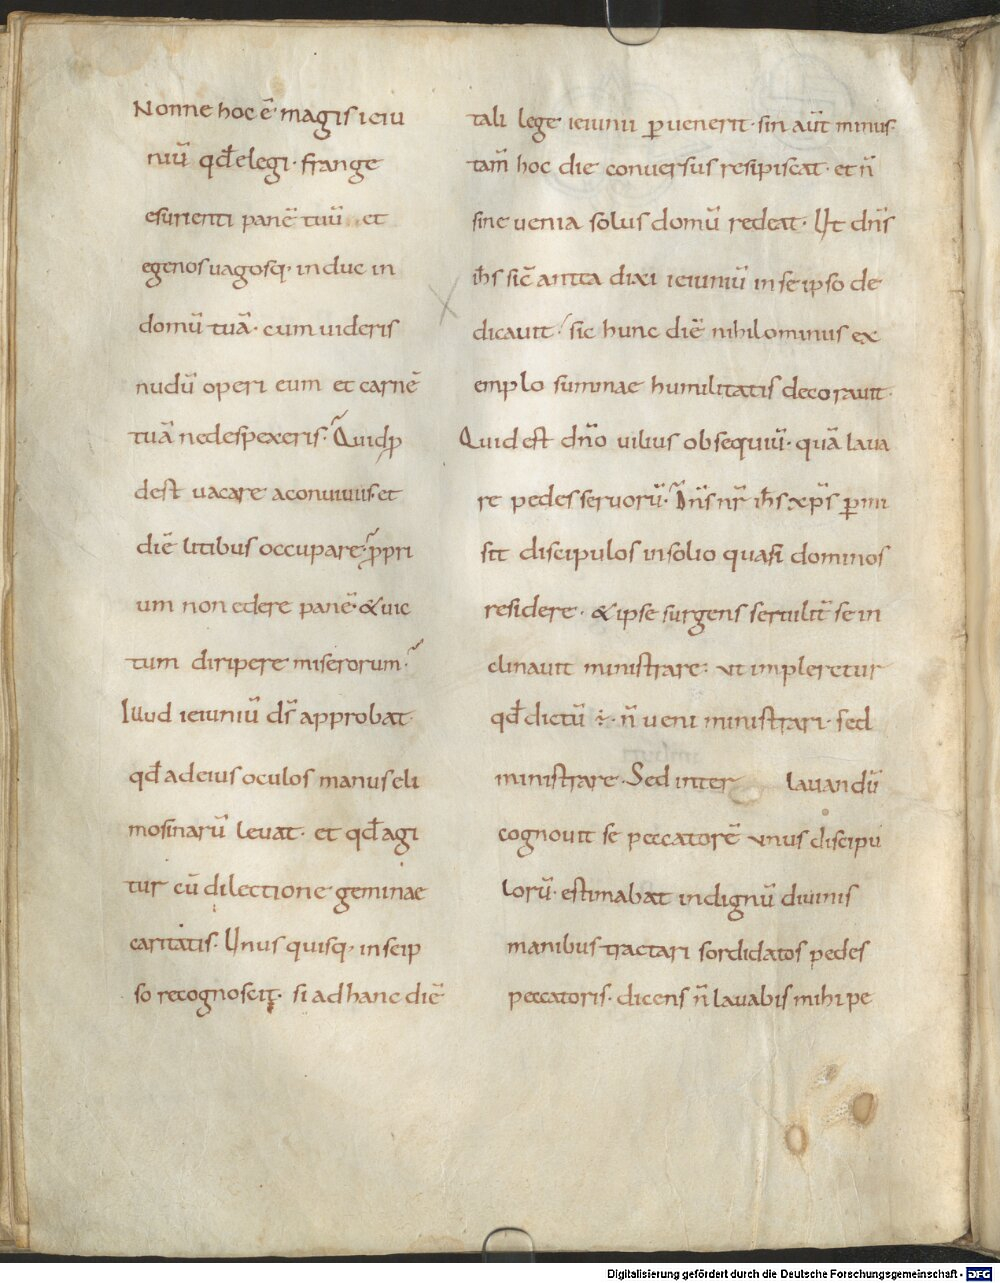 Nonne hoc ē magis ieiu
niū qđ elegi · frange
esurienti panē tuū et
egenos uagosq; induc in
domū tuā · cum uideris
nudū operi eum et carnē
tuā ne despexeris · Quid ꝓ
dest uacare a conuiuiis · et
diē litibus occupare · ꝓpri
um non edere panē · & uic
tum diripere miserorum ·
Illud ieiuniū ds̄ approbat ·
qđ ad eius oculos manus eli
mosinarū leuat · et qđ agi
tur cū dilectione geminae
caritatis · Unus quisq; in seip
so recognoscit · si ad hanc diē
tali lege ieiunii ꝑuenerit · sin aūt minus ·
tam̄ hoc die conuersus resipiscat · et n̄
sine uenia solus domū redeat · Ut dn̄s
ih̄s sic̄ antea dixi ieiuniū in se ipso de
dicauit · sic hunc diē nihilominus ex
emplo summae humilitatis decorauit ·
Quid est dn̄o uilius obsequiū · quā laua
re pedes seruorū · Dn̄s nr̄ ih̄s xp̄s ꝑmi
sit discipulos in solio quasi dominos
residere · & ipse surgens se tulit se in
clinauit ministrare : ut impleretur
qđ dictū ÷ · n̄ ueni ministrari · sed
ministrare · Sed inter lauandū
cognouit se peccatorē unus discipu
lorū · estimabat indignū diuinis
manibus tractari sordidatos pedes
peccatoris · dicens n̄ lauabis mihi pe
Digitalisierung gefördert durch die Deutsche Forschungsgemeinschaft - DFG